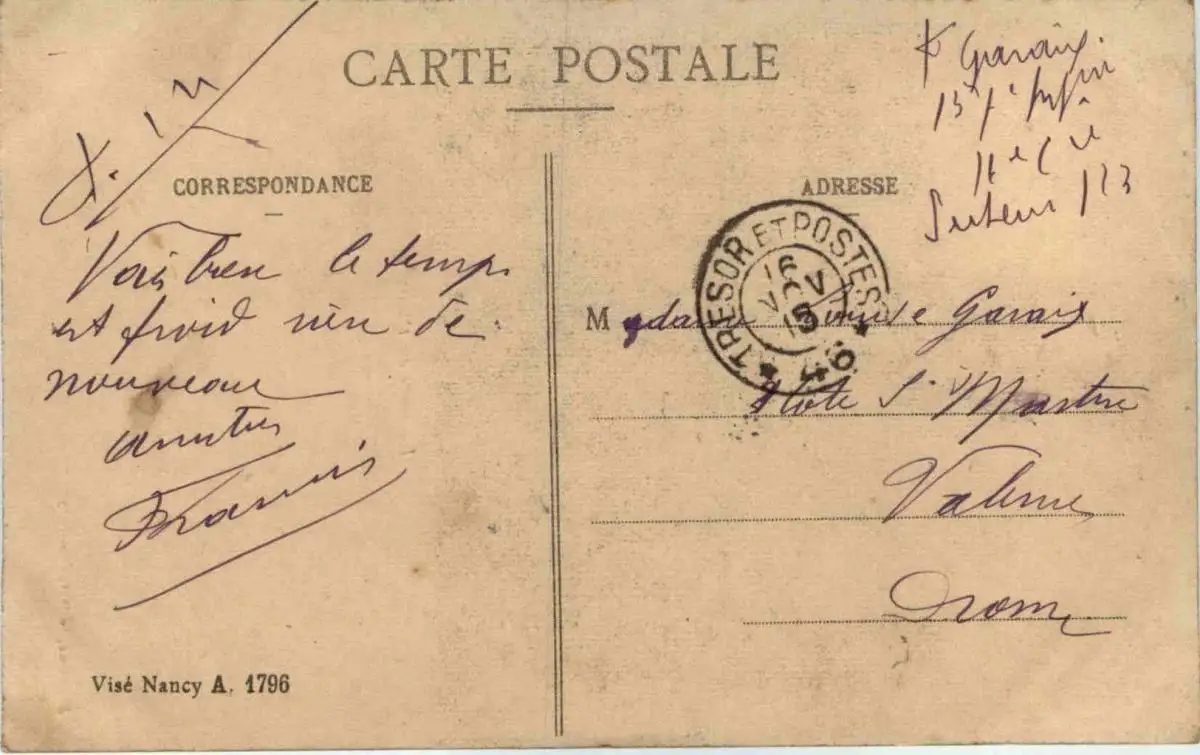 CARTE POSTALE
Garaix
Infie
11e Cie
Secteur 113
CORRESPONDANCE
ADRESSE
Vais bien le temps
est froid rien de
nouveau
amitiés
Francis
TRESOR ET POSTES
16
15
* 46 *
Madame Garaix
Côte St Martin
Valence
Drome
Visé Nancy A. 1796